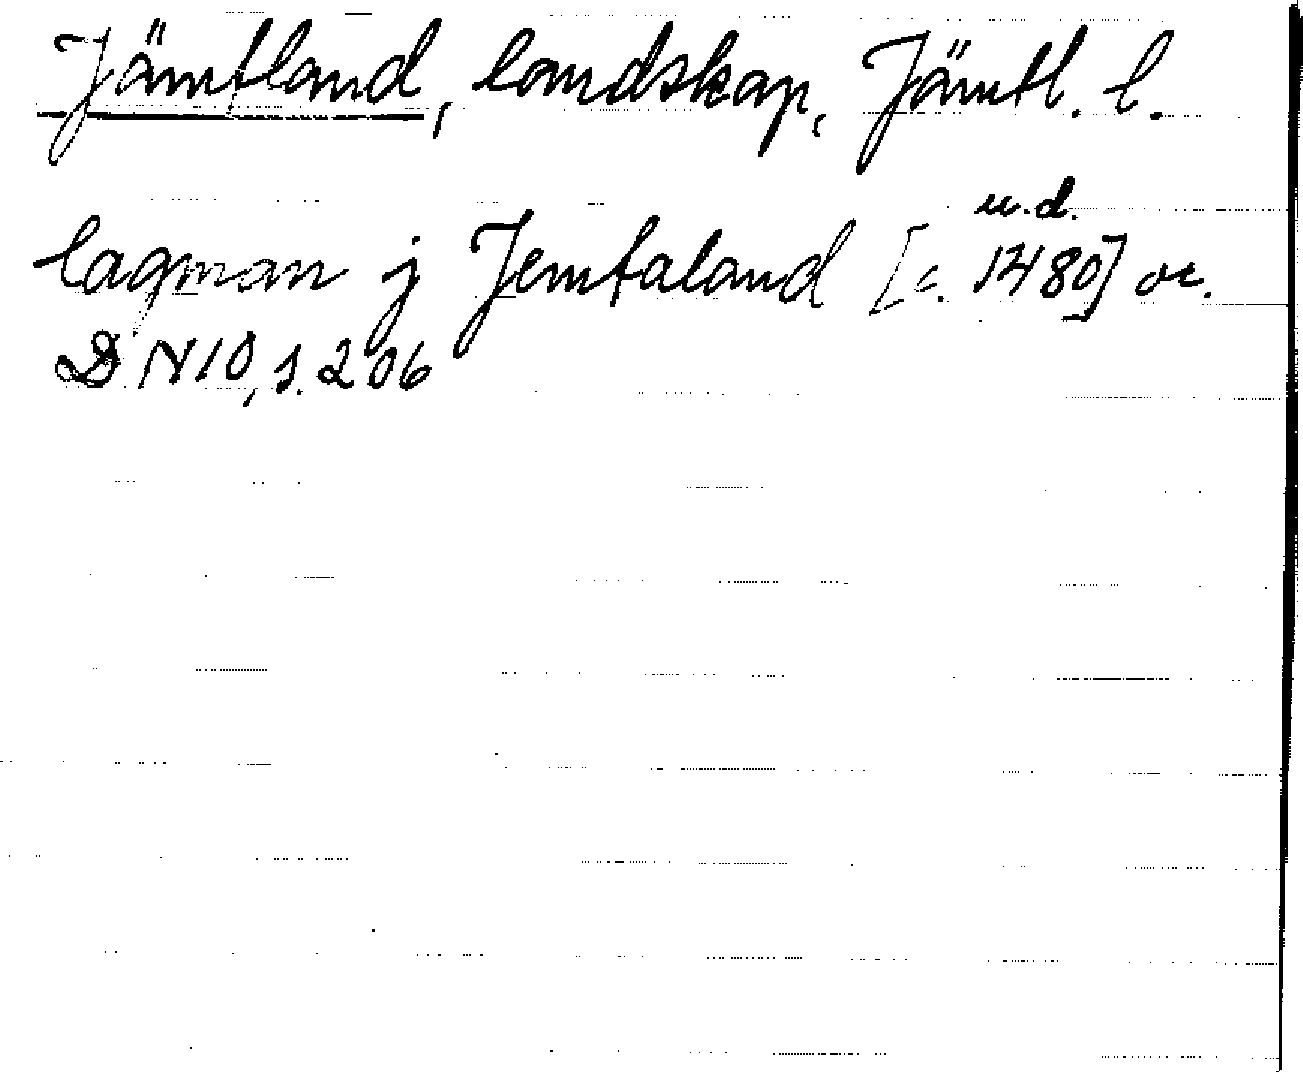 Jämtland, landskap, Jämtl. l.
u.d.
lagman j Jemtaland [c. 1480] or.
DN 10, s. 206